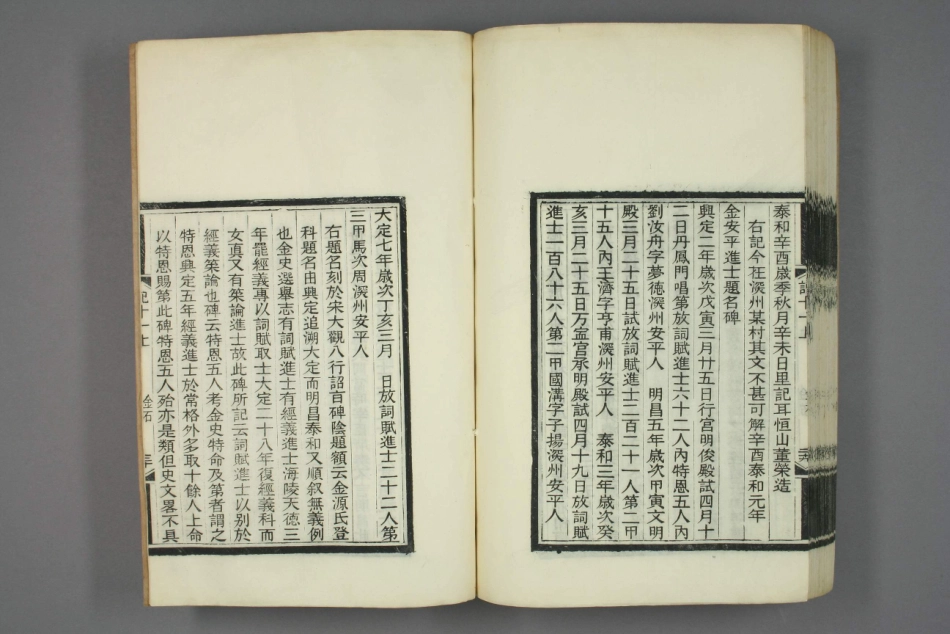 泰和辛酉歲季秋月辛未日里記耳恒山董榮造
右記今在深州某村其文不甚可解辛酉泰和元年
金安平進士題名碑
興定二年歲次戊寅三月廿五日行宫明俊殿試四月十
二日丹鳳門唱第放詞賦進士六十二人內特恩五人內
劉汝舟字夢德深州安平人　明昌五年歲次甲寅文明
殿三月二十五日試放詞賦進士二百二十一人第二甲
十五人內王濟字亨甫深州安平人　泰和三年歲次癸
亥三月二十五日万寍宫承明殿試四月十九日放詞賦
進士一百八十六人第二甲國溝字子揚深州安平人
大定七年歲次丁亥三月　日放詞賦進士二十二人第
三甲馬次周深州安平人
右題名刻於宋大觀八行詔百碑陰題額云金源氏登
科題名由興定追溯大定而明昌泰和又順叙無義例
也金史選舉志有詞賦進士有經義進士海陵天德三
年罷經義專以詞賦取士大定二十八年復經義科而
女真又有策論進士故此碑所記云詞賦進士以别於
經義策論也碑云特恩五人考金史特命及第者謂之
特恩興定五年經義進士於常格外多取十餘人上命
以特恩賜第此碑特恩五人殆亦是類但史文畧不具
記十一上
金石